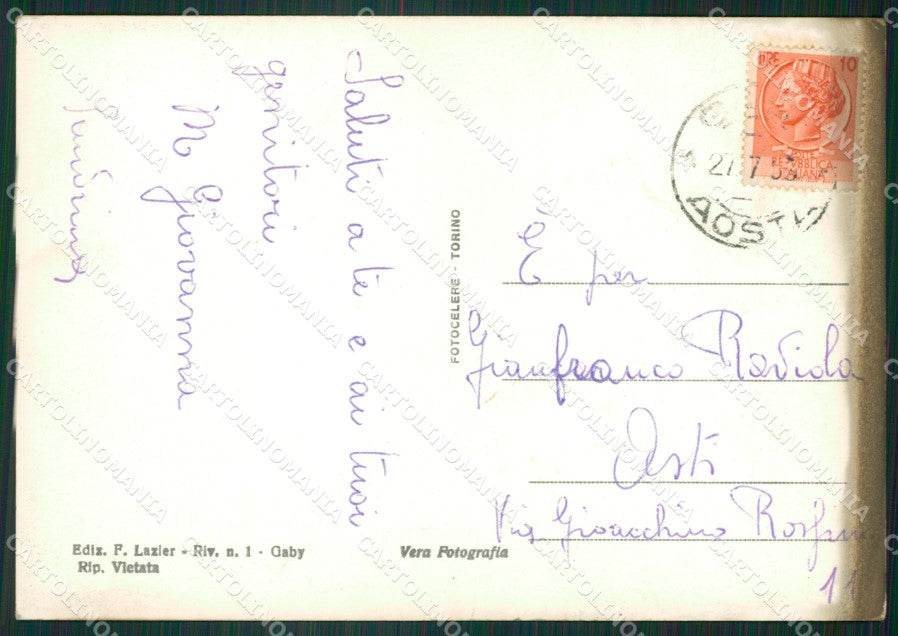 Saluti a te e ai tuoi
genitori
M Giovanna
FOTOCELERE - TORINO
10
REPUBBLICA
ITALIANA
27.7
AOSTA
E per
Gianfranco Raviola
Asti
Via Gioacchino
11
Ediz. F. Lazier - Riv. n. 1 - Gaby
Rip. Vietata
Vera Fotografia
CARTOLINOMANIA